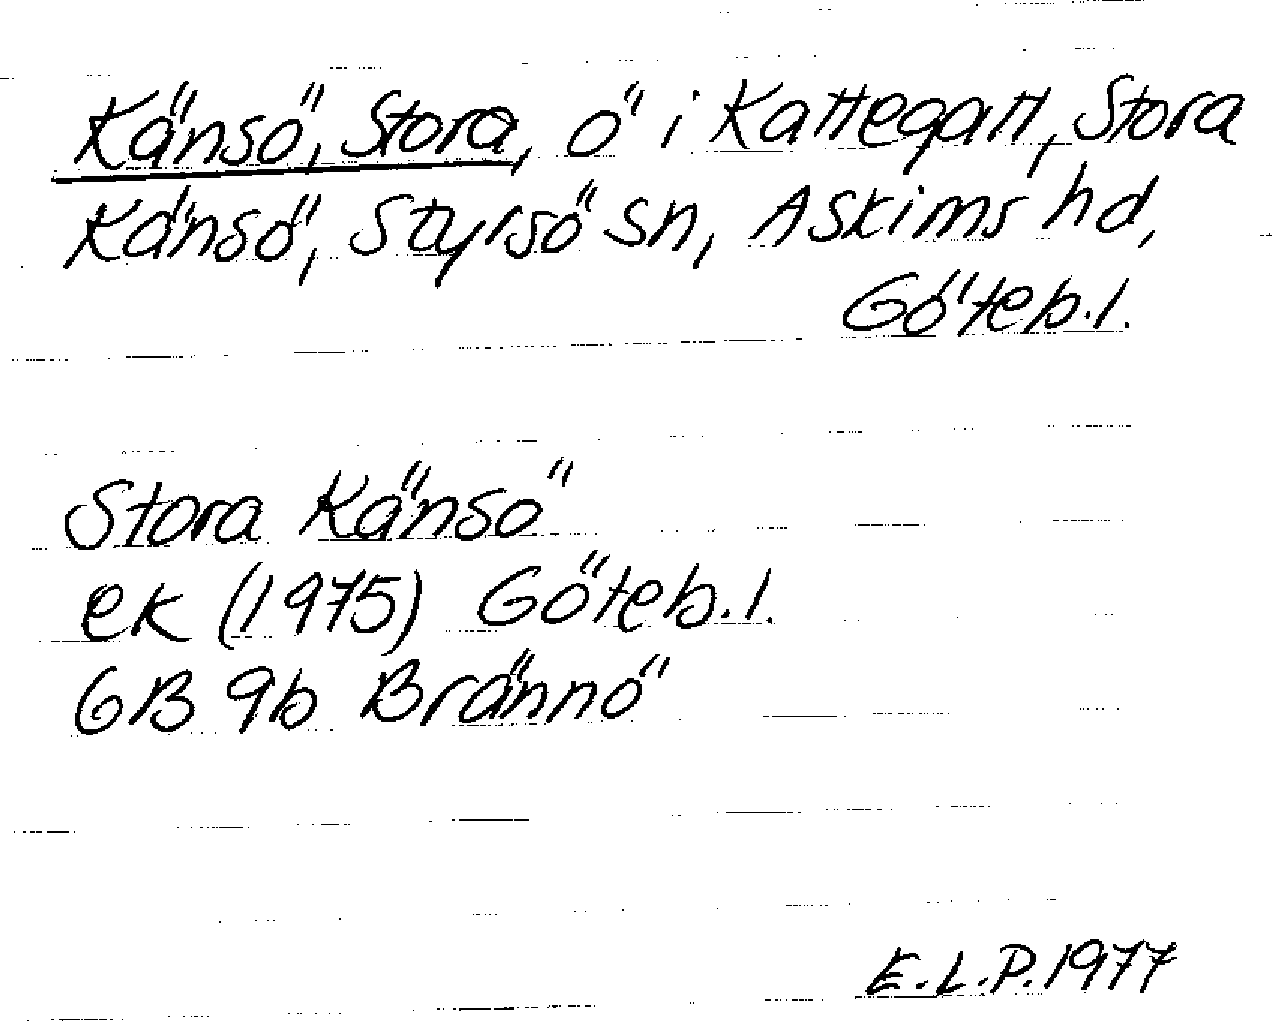 Känsö, Stora, ö i Kattegatt, Stora
Känsö, Styrsö sn, Askims hd,
Göteb.l.
Stora Känsö
ek (1975) Göteb.l.
GB 9b Brännö
E.L.P. 1977